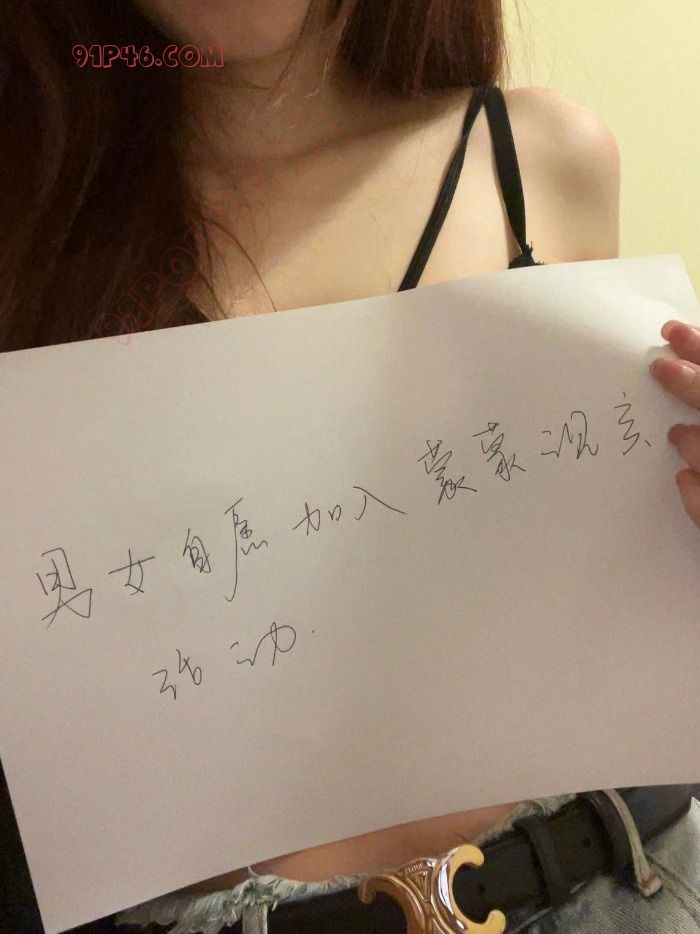 91P46.COM
男女自愿加入蒙蒙
活动.